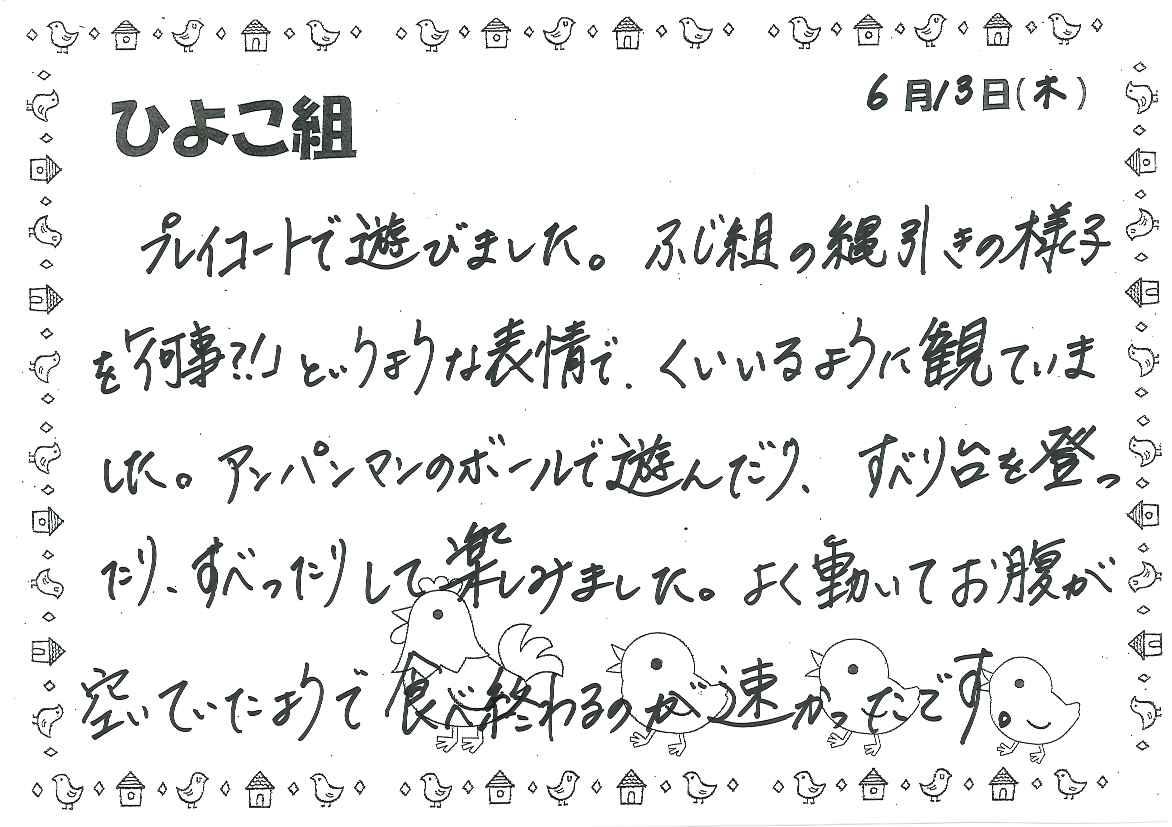 6月13日(木)
ひよこ組
プレイコートで遊びました。ふじ組の縄引きの様子
を「何事?!」というような表情で、くいいるように観ていま
した。アンパンマンのボールで遊んだり、すべり台を登っ
たり、すべったりして楽しみました。よく動いてお腹が
空いていたようで食べ終わるのが速かったです。